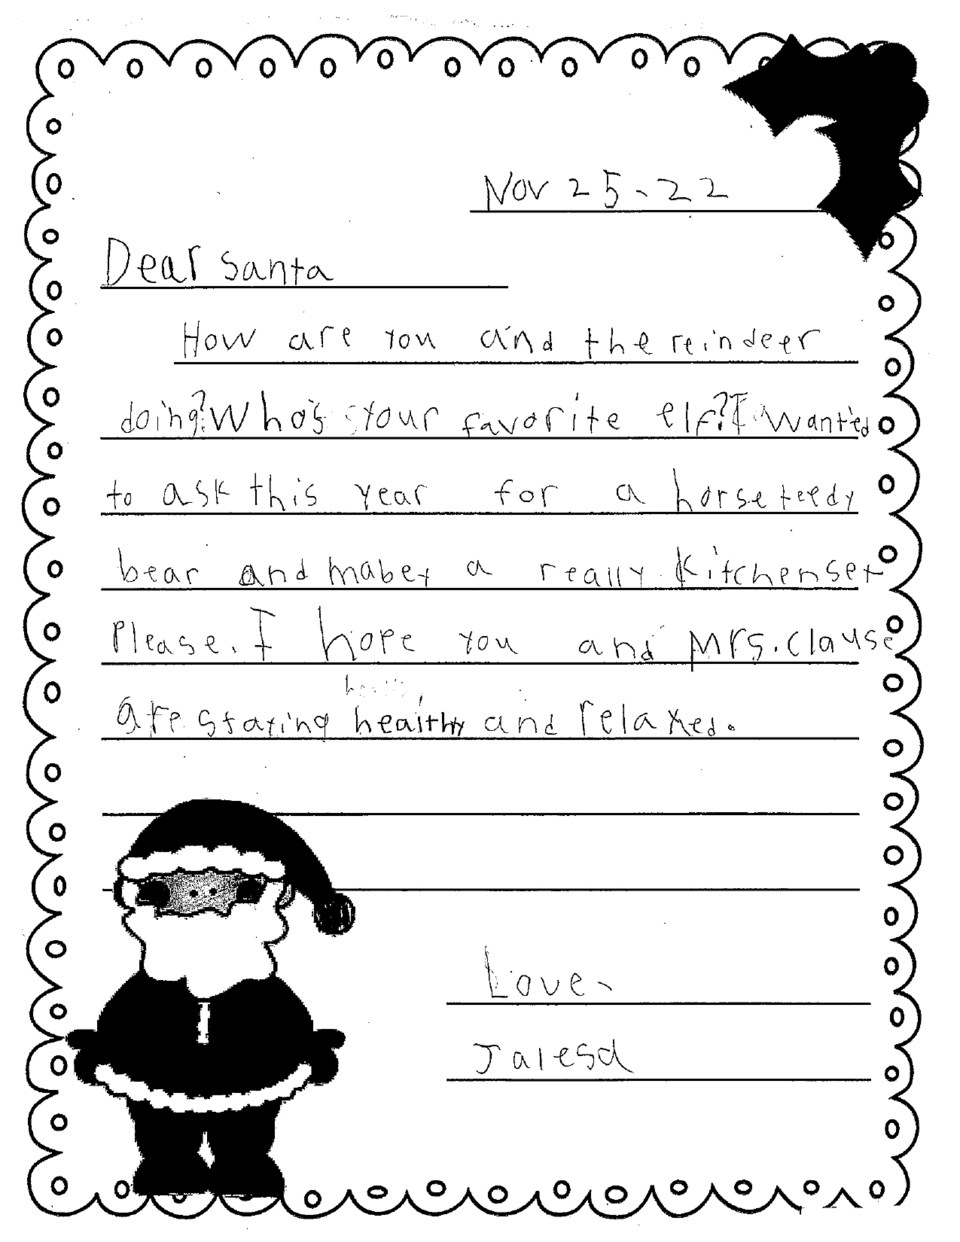 Nov 25-22
Dear Santa
How are you and the reindeer
doing? Who's your favorite elf? I wanted
to ask this year for a horse teedy
bear and mabey a really kitchenset
Please. I hope you and Mrs. Clause
are staying healthy and relaxed.
Love,
Jalesa